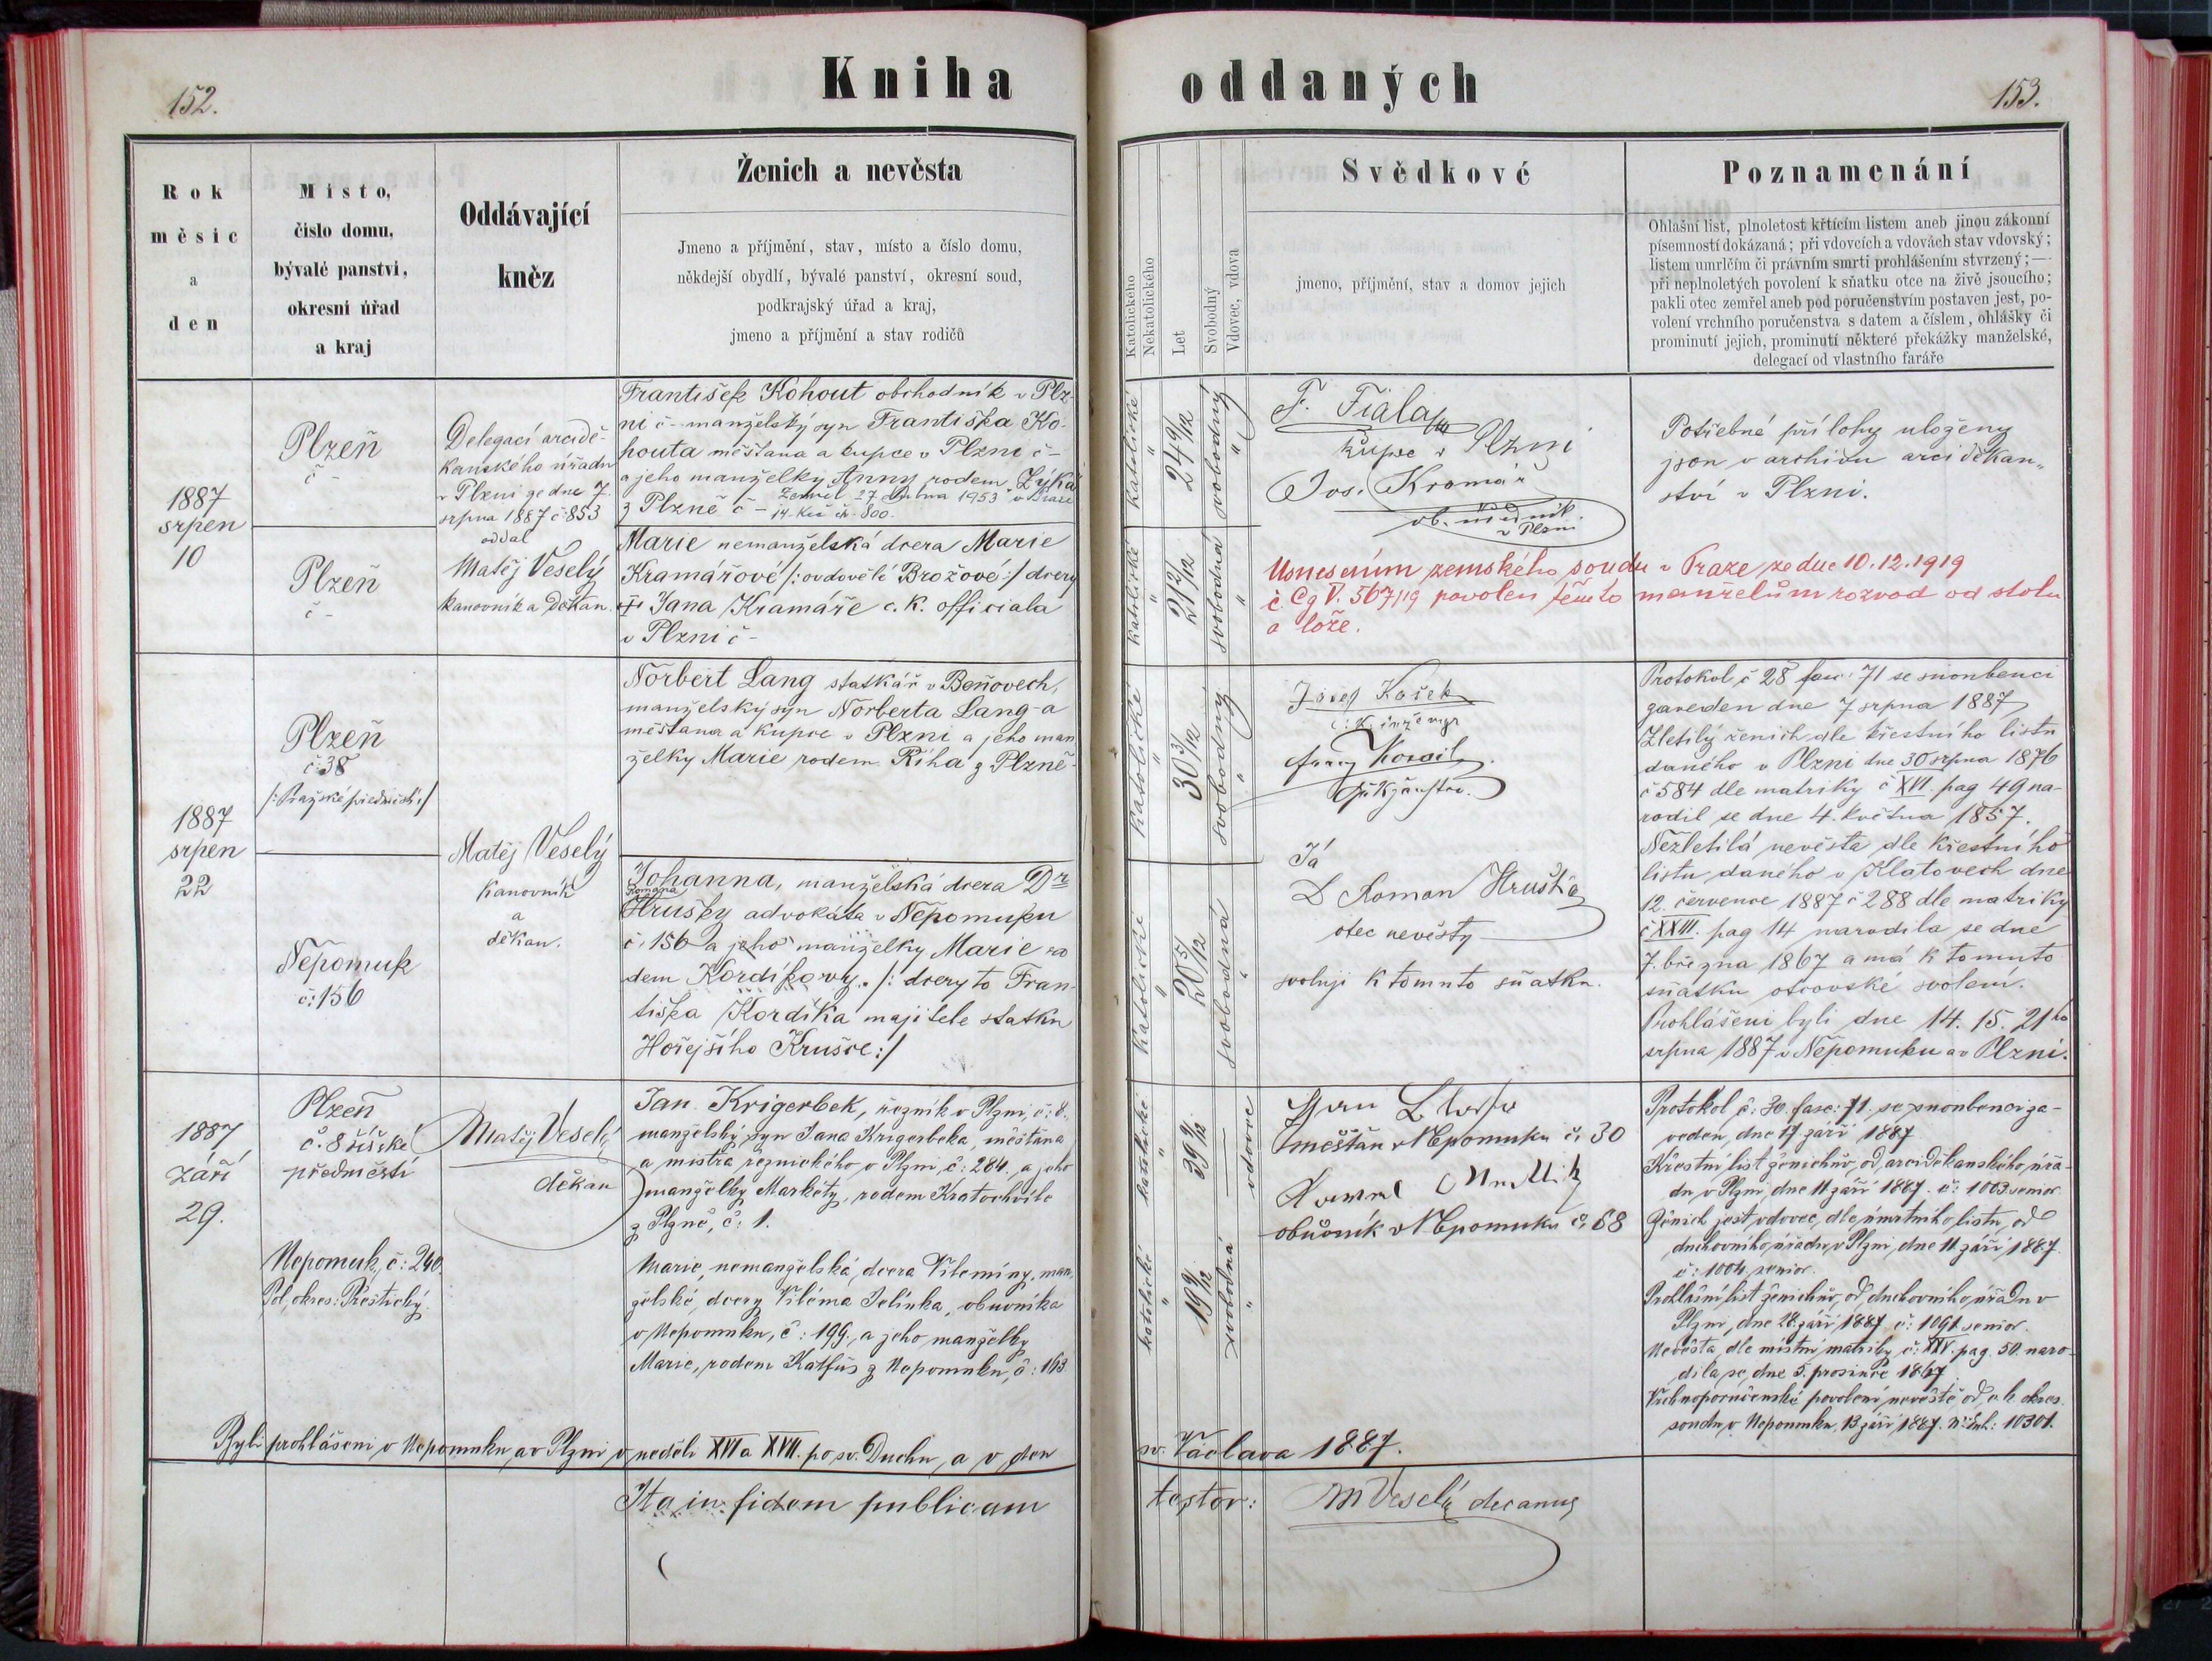 152.
Kniha oddaných
153.
Rok
měsíc
a
den
Místo,
číslo domu,
bývalé panství,
okresní úřad
a kraj
Oddávající
kněz
Ženich a nevěsta
Jmeno a příjmění, stav, místo a číslo domu,
někdejší obydlí, bývalé panství, okresní soud,
podkrajský úřad a kraj,
jmeno a příjmění a stav rodičů
Katolického
Nekatolického
Let
Svobodný
Vdovec, vdova
Svědkové
jmeno, příjmění, stav a domov jejich
Poznamenání
Ohlašní list, plnoletost křtícím listem aneb jinou zákonní
písemností dokázaná; při vdovcích a vdovách stav vdovský;
listem umrlčím či právním smrti prohlášením stvrzený;—
při neplnoletých povolení k sňatku otce na živě jsoucího;
pakli otec zemřel aneb pod poručenstvím postaven jest, po-
volení vrchního poručenstva s datem a číslem, ohlášky či
prominutí jejich, prominutí některé překážky manželské,
delegací od vlastního faráře
1887
srpen
10
Plzeň
č -
Plzeň
č -
Delegací arcidě-
kanského úřadu
v Plzni ze dne 7.
srpna 1887 č. 853
oddal
Matěj Veselý
kanovník a Děkan.
František Kohout obchodník v Plz-
ni č - manželský syn Františka Ko-
houta měšťana a kupce v Plzni č -
a jeho manželky Anny rodem Zýka
z Plzně č -
Zemřel 27. dubna 1953 v Praze
14. kn. čís. 800.
Marie nemanželská dcera Marie
Kramářové /: ovdovělé Brožové :/ dcery
† Jana Kramáře c. k. officiala
v Plzni č -
katolické
"
24 9/12
svobodný
"
katolické
"
21 2/12
svobodná
"
F. Fiala
kupec v Plzni
Jos. Kramář
ob. úředník
v Plzni
Potřebné přílohy uloženy
jsou v archivu arciděkan-
ství v Plzni.
Usnesením zemského soudu v Praze ze dne 10.12.1919
č. Cg V. 567/19 povolen těmto manželům rozvod od stolu
a lože.
1887
srpen
22
Plzeň
č: 38
/: Pražské předměstí :/
Nepomuk
č: 156
Matěj Veselý
Kanovník
a
děkan.
Norbert Lang statkář v Beňovech,
manželský syn Norberta Lang-a
měšťana a kupce v Plzni a jeho man
želky Marie rodem Říha z Plzně.
Johanna, manželská dcera Dra
Romana
Hrušky advokáta v Nepomuku
č: 156 a jeho manželky Marie ro
dem Kordíkovy. /: dcery to Fran-
tiška Kordíka majitele statku
Hořejšího Krušce :/
katolické
"
30 3/12
svobodný
"
katolické
"
20 5/12
svobodná
"
Josef Košek
Já
D Roman Hruška
otec nevěsty
svoluji k tomuto sňatku.
Protokol č 28 fasc: 71 se snoubenci
zaveden dne 7 srpna 1887
Zletilý ženich dle křestního listu
daného v Plzni dne 30 srpna 1876
č 584 dle matriky č XVI. pag 49 na-
rodil se dne 4. května 1857.
Nezletilá nevěsta dle křestního
listu daného v Klatovech dne
12. července 1887 č 288 dle matriky
č XXIII. pag 14 narodila se dne
7. března 1867 a má k tomuto
sňatku otcovské svolení.
Prohlášeni byli dne 14. 15. 21ho
srpna 1887 v Nepomuku a v Plzni.
1887
září
29.
Plzeň
č. 8 říšské
předměstí
Nepomuk, č: 240.
Pol. okres: Přeštický.
Matěj Veselý
děkan
Jan Krigerbek, řezník v Plzni, č: 8.
manželský syn Jana Krigerbeka, měšťana
a mistra řeznického v Plzni, č: 284. a jeho
manželky Markéty, rodem Kratochvíle
z Plzně, č: 1.
Marie, nemanželská, dcera Vilemíny, man-
želské, dcery Viléma Jelínka, obuvníka
v Nepomuku, č: 199, a jeho manželky
Marie, rodem Kalfus z Nepomuku, č: 163
katolické
"
39 9/12
vdovec
katolické
"
19 9/12
svobodná
"
měšťan v Nepomuku č: 30
obuvník v Nepomuku č: 68
Protokol, č: 30. fasc: 71. se snoubenci za-
veden, dne 17 září 1887.
Křestní list ženichův, od arciděkanského úřa-
du v Plzni, dne 11 září 1887. č: 1003. senior.
Ženich jest vdovec, dle úmrtního listu, od
duchovního úřadu v Plzni, dne 11 září 1887.
č: 1004. senior.
Prohlašní list ženichův, od duchovního úřadu v
Plzni, dne 28. září 1887. č: 1091. senior.
Nevěsta, dle místní matriky č: XXV. pag. 50. naro-
dila se, dne 5. prosince 1867.
Vrchnoporučenské povolení nevěstě od c. k. okres.
soudu v Nepomuku, 13 září 1887. N: Exh: 10301.
Byli prohlášeni v Nepomuku a v Plzni v neděli XVI a XVII. po sv. Duchu, a v den sv. Václava 1887.
Ita in fidem publicam testor: M Veselý decanus